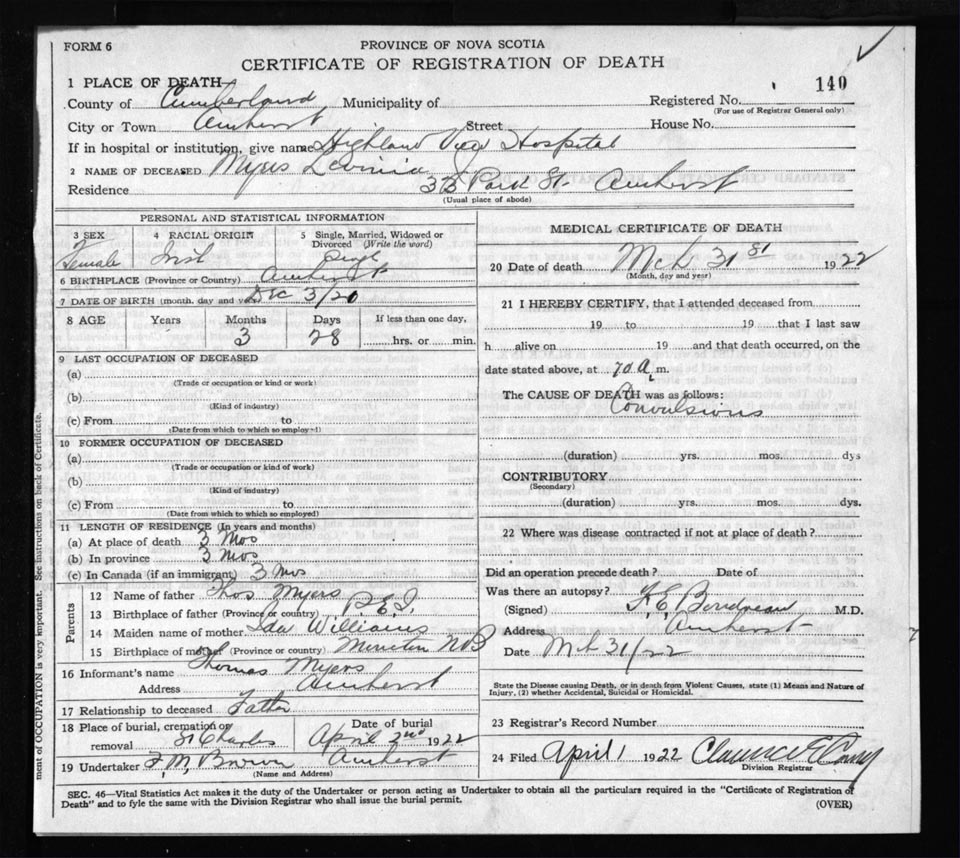 FORM 6
PROVINCE OF NOVA SCOTIA
CERTIFICATE OF REGISTRATION OF DEATH
1 PLACE OF DEATH
140
County of Cumberland Municipality of Registered No.
(For use of Registrar General only)
City or Town Amherst Street House No.
If in hospital or institution, give name Highland View Hospital
2 NAME OF DECEASED Myers Lavinia
Residence 35 Park St. Amherst
(Usual place of abode)
PERSONAL AND STATISTICAL INFORMATION
3 SEX 4 RACIAL ORIGIN 5 Single, Married, Widowed or Divorced (Write the word)
Female Irish Single
6 BIRTHPLACE (Province or Country) Amherst
7 DATE OF BIRTH (month, day and Dec 3/21
8 AGE Years Months Days If less than one day,
3 28 hrs. or min.
9 LAST OCCUPATION OF DECEASED
(a)
(Trade or occupation or kind or work)
(b)
(Kind of industry)
(c) From to
(Date from which to which so employ
10 FORMER OCCUPATION OF DECEASED
(a)
(Trade or occupation or kind of work)
(b)
(Kind of industry)
(c) From to
(Date from which to which so employed)
11 LENGTH OF RESIDENCE (In years and months)
(a) At place of death 3 Mos
(b) In province 3 Mos
(c) In Canada (if an immigrant) 3 Mos
Parents
12 Name of father Thos Myers
13 Birthplace of father (Province or country) P.E.I.
14 Maiden name of mother Ida Williams
15 Birthplace of mother (Province or country) N B
16 Informant's name Thomas Myers
Address Amherst
17 Relationship to deceased Father
18 Place of burial, cremation or removal St Charles
Date of burial April 2nd 1922
19 Undertaker F M Brown Amherst
(Name and Address)
MEDICAL CERTIFICATE OF DEATH
20 Date of death Mch 31st 1922
(Month, day and year)
21 I HEREBY CERTIFY, that I attended deceased from
19 to 19 that I last saw
h alive on 19 and that death occurred, on the
date stated above, at m.
The CAUSE OF DEATH was as follows:
Convulsions
(duration) yrs. mos. dys
CONTRIBUTORY
(Secondary)
(duration) yrs. mos. dys.
22 Where was disease contracted if not at place of death?
Did an operation precede death? Date of
Was there an autopsy?
(Signed) Boudreau M.D.
Address Amherst
Date Mch 31/22
State the Disease causing Death, or in death from Violent Causes, state (1) Means and Nature of
Injury, (2) whether Accidental, Suicidal or Homicidal.
23 Registrar's Record Number
24 Filed April 1 1922 Clarence E
Division Registrar
SEC. 46—Vital Statistics Act makes it the duty of the Undertaker or person acting as Undertaker to obtain all the particulars required in the "Certificate of Registration of
Death" and to fyle the same with the Division Registrar who shall issue the burial permit.
(OVER)
ment of OCCUPATION is very important. See instructions on back of Certificate.